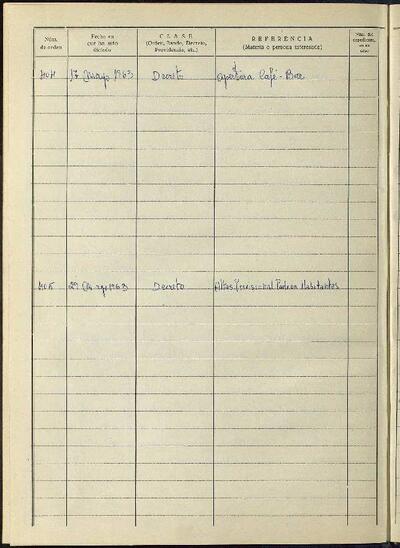 Núm. de orden
Fecha en que ha sido dictado
CLASE (Orden, Bando, Decreto, Providencia, etc.)
REFERENCIA (Materia o persona interesada)
Núm. del expediente, en su caso
17 Mayo 1963 Decreto apertura Café-Bar
29 Mayo 1963 Decreto Altas Padron Habitantes